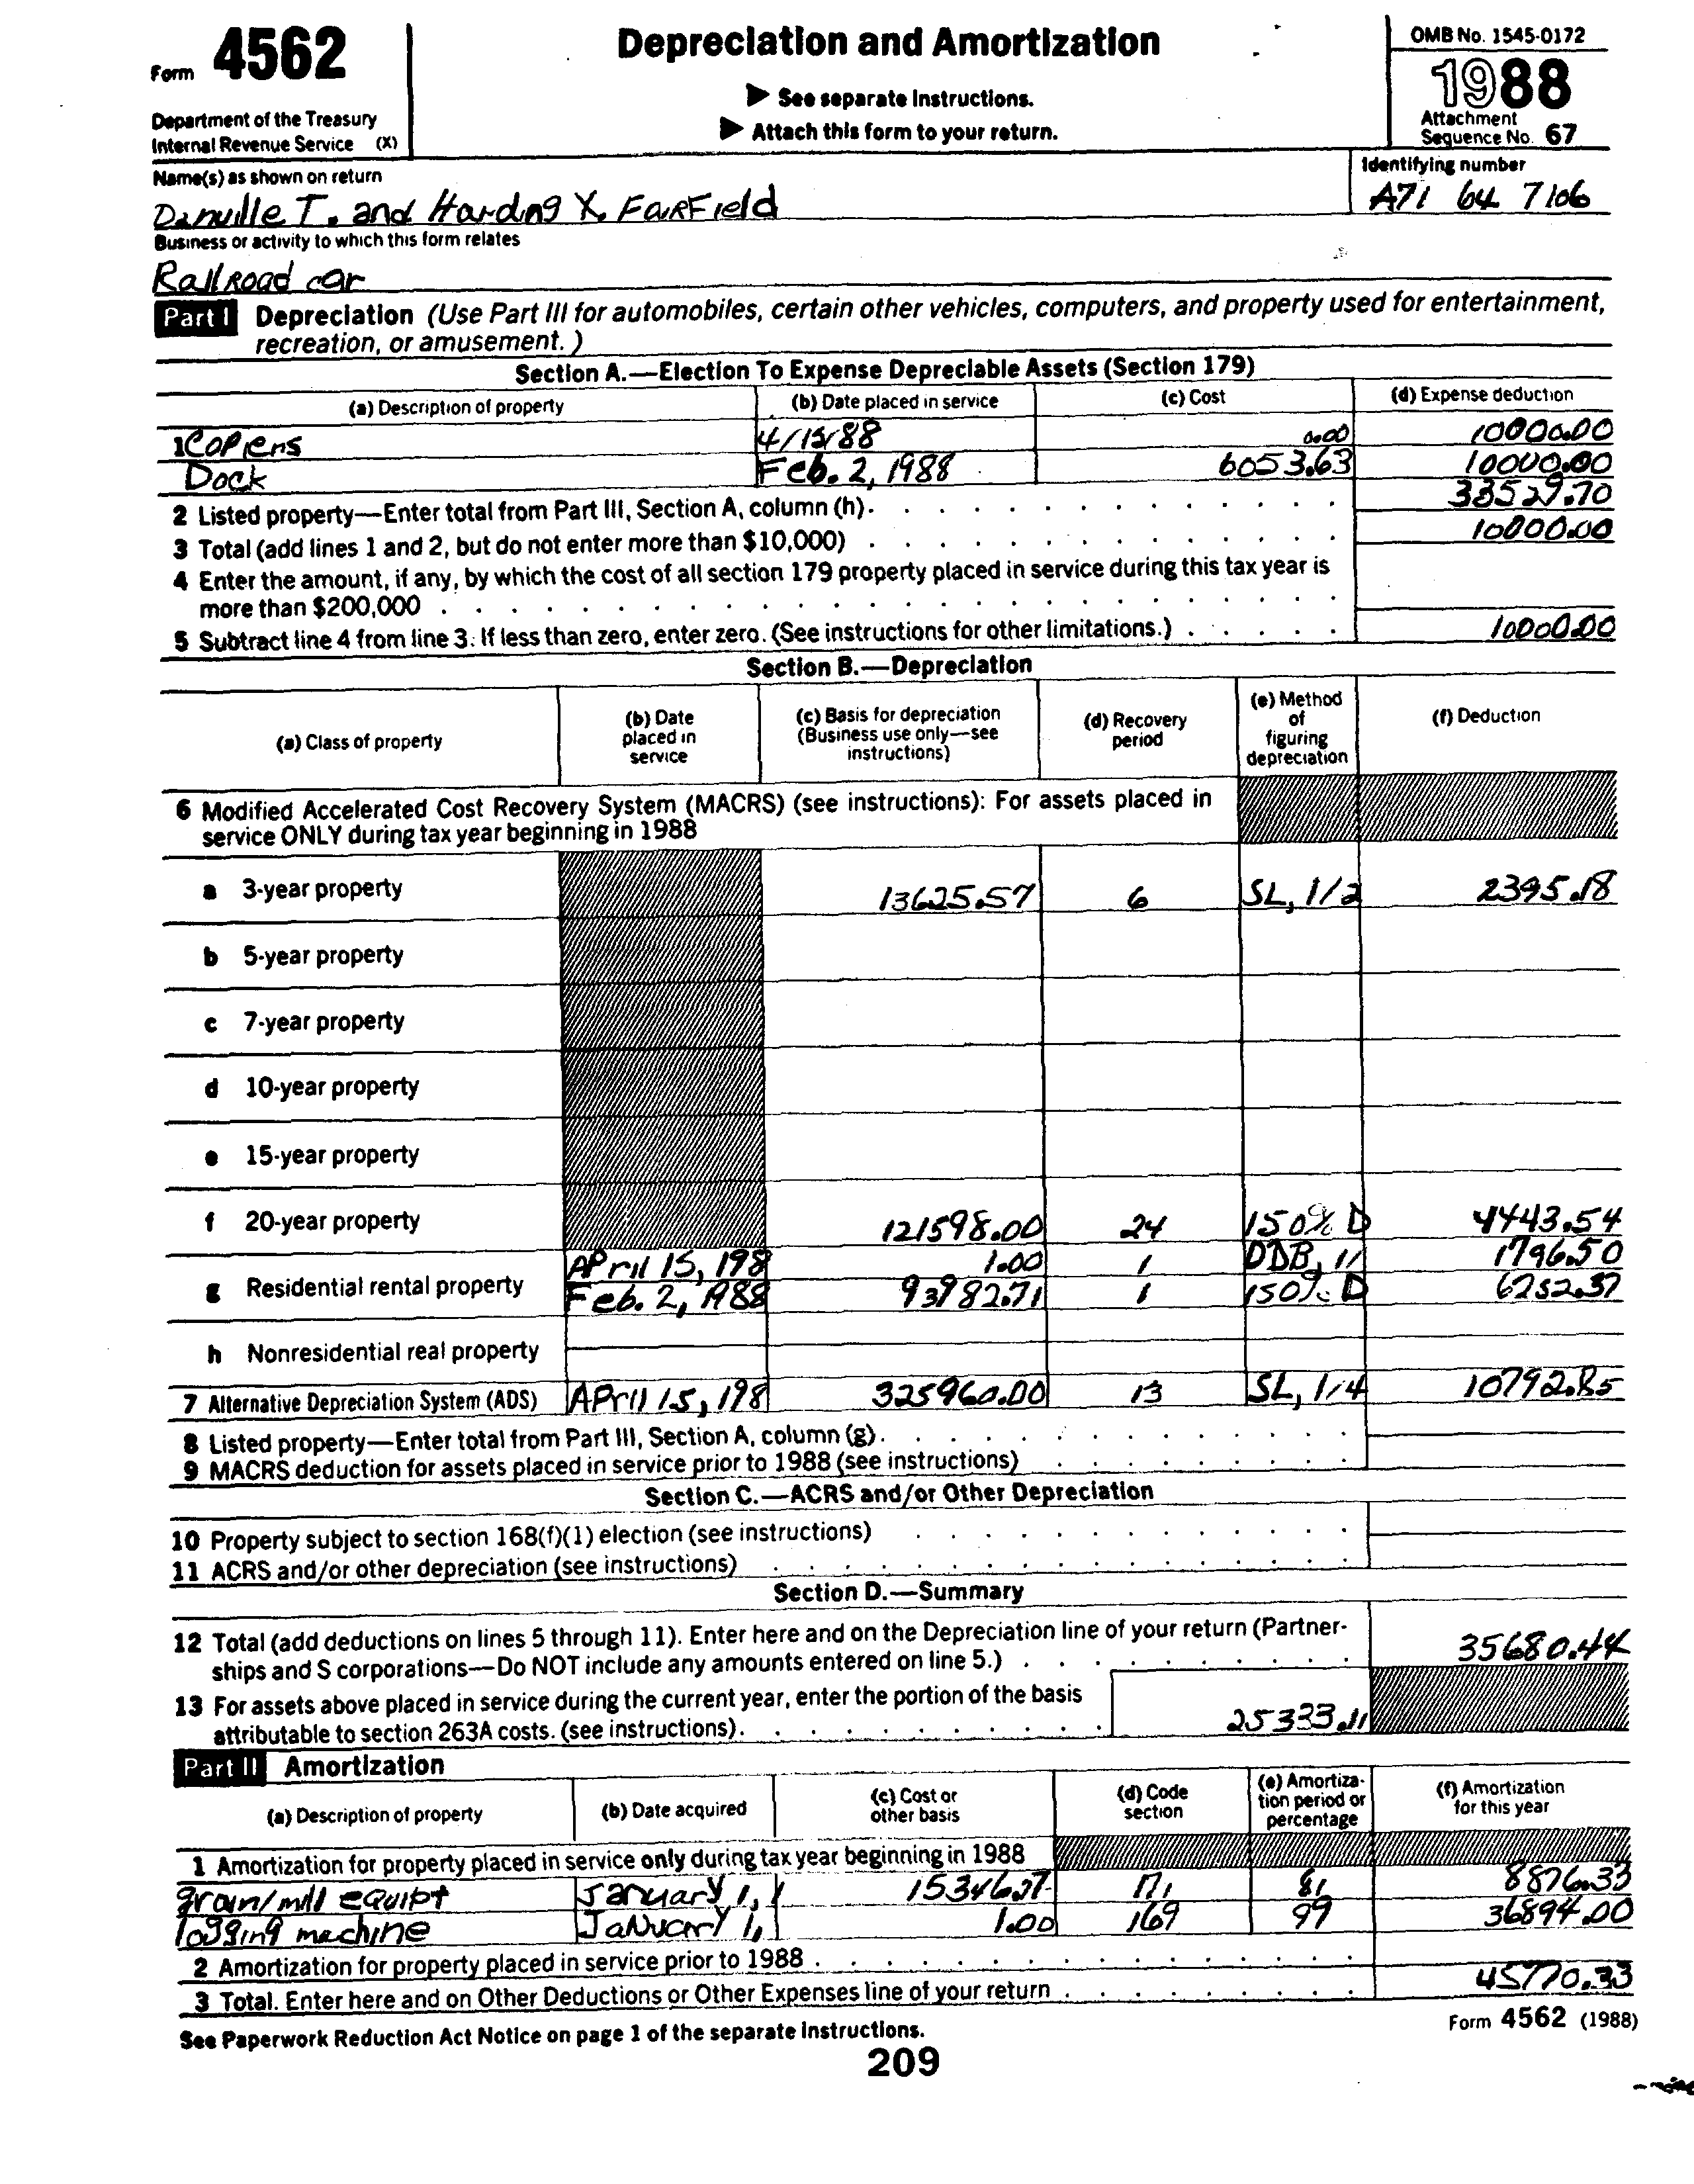 Form 4562
Department of the Treasury
Internal Revenue Service (X)
Depreciation and Amortization
▶ See separate Instructions.
▶ Attach this form to your return.
OMB No. 1545-0172
1988
Attachment
Sequence No. 67
Name(s) as shown on return
Danville T. and Harding X. FairField
Identifying number
A71 64 7106
Business or activity to which this form relates
Railroad car
Part I Depreciation (Use Part III for automobiles, certain other vehicles, computers, and property used for entertainment,
recreation, or amusement.)
Section A.—Election To Expense Depreciable Assets (Section 179)
(a) Description of property (b) Date placed in service (c) Cost (d) Expense deduction
1 Copiers 4/15/88 0.00 10000.00
Dock Feb. 2, 1988 6053.63 10000.00
2 Listed property—Enter total from Part III, Section A, column (h). 33529.70
3 Total (add lines 1 and 2, but do not enter more than $10,000) 10000.00
4 Enter the amount, if any, by which the cost of all section 179 property placed in service during this tax year is
more than $200,000
5 Subtract line 4 from line 3. If less than zero, enter zero. (See instructions for other limitations.) 10000.00
Section B.—Depreciation
(a) Class of property (b) Date placed in service (c) Basis for depreciation (Business use only—see instructions) (d) Recovery period (e) Method of figuring depreciation (f) Deduction
6 Modified Accelerated Cost Recovery System (MACRS) (see instructions): For assets placed in
service ONLY during tax year beginning in 1988
a 3-year property 13625.57 6 SL, 1/2 2395.18
b 5-year property
c 7-year property
d 10-year property
e 15-year property
f 20-year property 121598.00 24 150% D 4443.54
April 15, 198 1.00 1 DDB, 1/ 1796.50
g Residential rental property Feb. 2, 1988 93982.71 1 150% D 6252.37
h Nonresidential real property
7 Alternative Depreciation System (ADS) April 15, 198 325960.00 13 SL, 1/4 10792.85
8 Listed property—Enter total from Part III, Section A, column (g).
9 MACRS deduction for assets placed in service prior to 1988 (see instructions)
Section C.—ACRS and/or Other Depreciation
10 Property subject to section 168(f)(1) election (see instructions)
11 ACRS and/or other depreciation (see instructions)
Section D.—Summary
12 Total (add deductions on lines 5 through 11). Enter here and on the Depreciation line of your return (Partner-
ships and S corporations—Do NOT include any amounts entered on line 5.) 35680.44
13 For assets above placed in service during the current year, enter the portion of the basis
attributable to section 263A costs. (see instructions). 25333.11
Part II Amortization
(a) Description of property (b) Date acquired (c) Cost or other basis (d) Code section (e) Amortization period or percentage (f) Amortization for this year
1 Amortization for property placed in service only during tax year beginning in 1988
grain/mill equipt January 1, 1 15346.27 171 81 8876.33
logging machine January 1, 1.00 169 99 36894.00
2 Amortization for property placed in service prior to 1988
3 Total. Enter here and on Other Deductions or Other Expenses line of your return 45770.33
See Paperwork Reduction Act Notice on page 1 of the separate Instructions.
Form 4562 (1988)
209